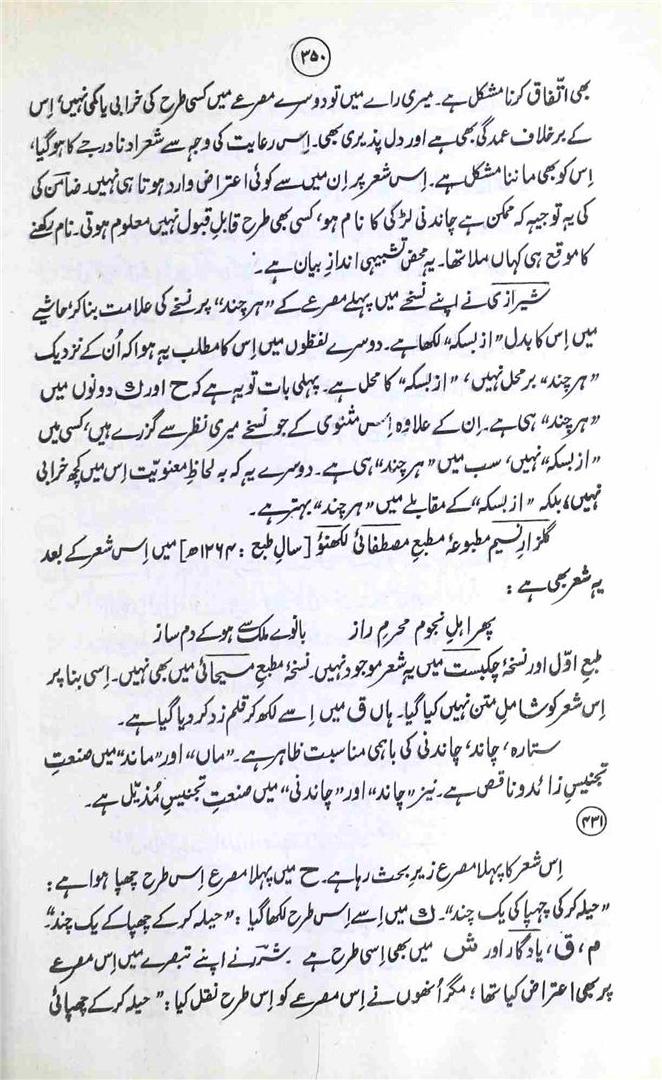 ۳۵۰
بھی اتّفاق کرنا مشکل ہے۔ میری راے میں تو دوسرے مصرعے میں کسی طرح کی خرابی یا کمی نہیں؛ اِس
کے برخلاف عمدگی بھی ہے اور دل پذیری بھی۔ اِس رعایت کی وجہ سے شعر ادنا درجے کا ہو گیا،
اِس کو بھی ماننا مشکل ہے۔ اِس شعر پر اِن میں سے کوئی اعتراض وارد ہوتا ہی نہیں۔ ضامن کی
کی یہ توجیہ کہ ممکن ہے چاندنی لڑکی کا نام ہو، کسی بھی طرح قابلِ قبول نہیں معلوم ہوتی۔ نام رکھنے
کا موقع ہی کہاں ملا تھا۔ یہ محض تشبیہی اندازِ بیان ہے۔
شیرازی نے اپنے نسخے میں پہلے مصرعے کے "ہرچند" پر نسخے کی علامت بنا کر حاشیے
میں اِس کا بدل "ازبسکہ" لکھا ہے۔ دوسرے لفظوں میں اِس کا مطلب یہ ہوا کہ اُن کے نزدیک
"ہرچند" برمحل نہیں، "ازبسکہ" کا محل ہے۔ پہلی بات تو یہ ہے کہ ح اور ک دونوں میں
"ہرچند" ہی ہے۔ اِن کے علاوہ اِس مثنوی کے جو نسخے میری نظر سے گزرے ہیں، کسی میں
"ازبسکہ" نہیں، سب میں "ہرچند" ہی ہے۔ دوسرے یہ کہ بہ لحاظِ معنویت اِس میں کچھ خرابی
نہیں، بلکہ "ازبسکہ" کے مقابلے میں "ہرچند" بہتر ہے۔
گلزارِ نسیم مطبوعۂ مطبعِ مصطفائی لکھنؤ [سالِ طبع : ۱۲۶۴ھ] میں اِس شعر کے بعد
یہ شعر بھی ہے :
پھر اہلِ نجوم محرمِ راز بانوے ملک سے ہو کے دم ساز
طبعِ اوّل اور نسخۂ چکبست میں یہ شعر موجود نہیں۔ نسخۂ مطبعِ مسیحائی میں بھی نہیں۔ اِسی بنا پر
اِس شعر کو شاملِ متن نہیں کیا گیا۔ ہاں ق میں اِسے لکھ کر قلم زد کر دیا گیا ہے۔
ستارہ، چاند، چاندنی کی باہمی مناسبت ظاہر ہے۔ "ماں" اور "ماند" میں صنعتِ
تجنیسِ زائد و ناقص ہے۔ نیز "چاند" اور "چاندنی" میں صنعتِ تجنیسِ مُذیّل ہے۔
۴۳۱
اِس شعر کا پہلا مصرع زیرِ بحث رہا ہے۔ ح میں پہلا مصرع اِس طرح چھپا ہوا ہے :
"حیلہ کر کی چہپا کی یک چند"۔ ک میں اِسے اِس طرح لکھا گیا : "حیلہ کر کے چھپا کے یک چند"۔
م، ق، یادگار اور ش میں بھی اِسی طرح ہے شررؔ نے اپنے تبصرے میں اِس مصرعے
پر بھی اعتراض کیا تھا؛ مگر اُنھوں نے اِس مصرعے کو اِس طرح نقل کیا : "حیلہ کر کے چھپائی